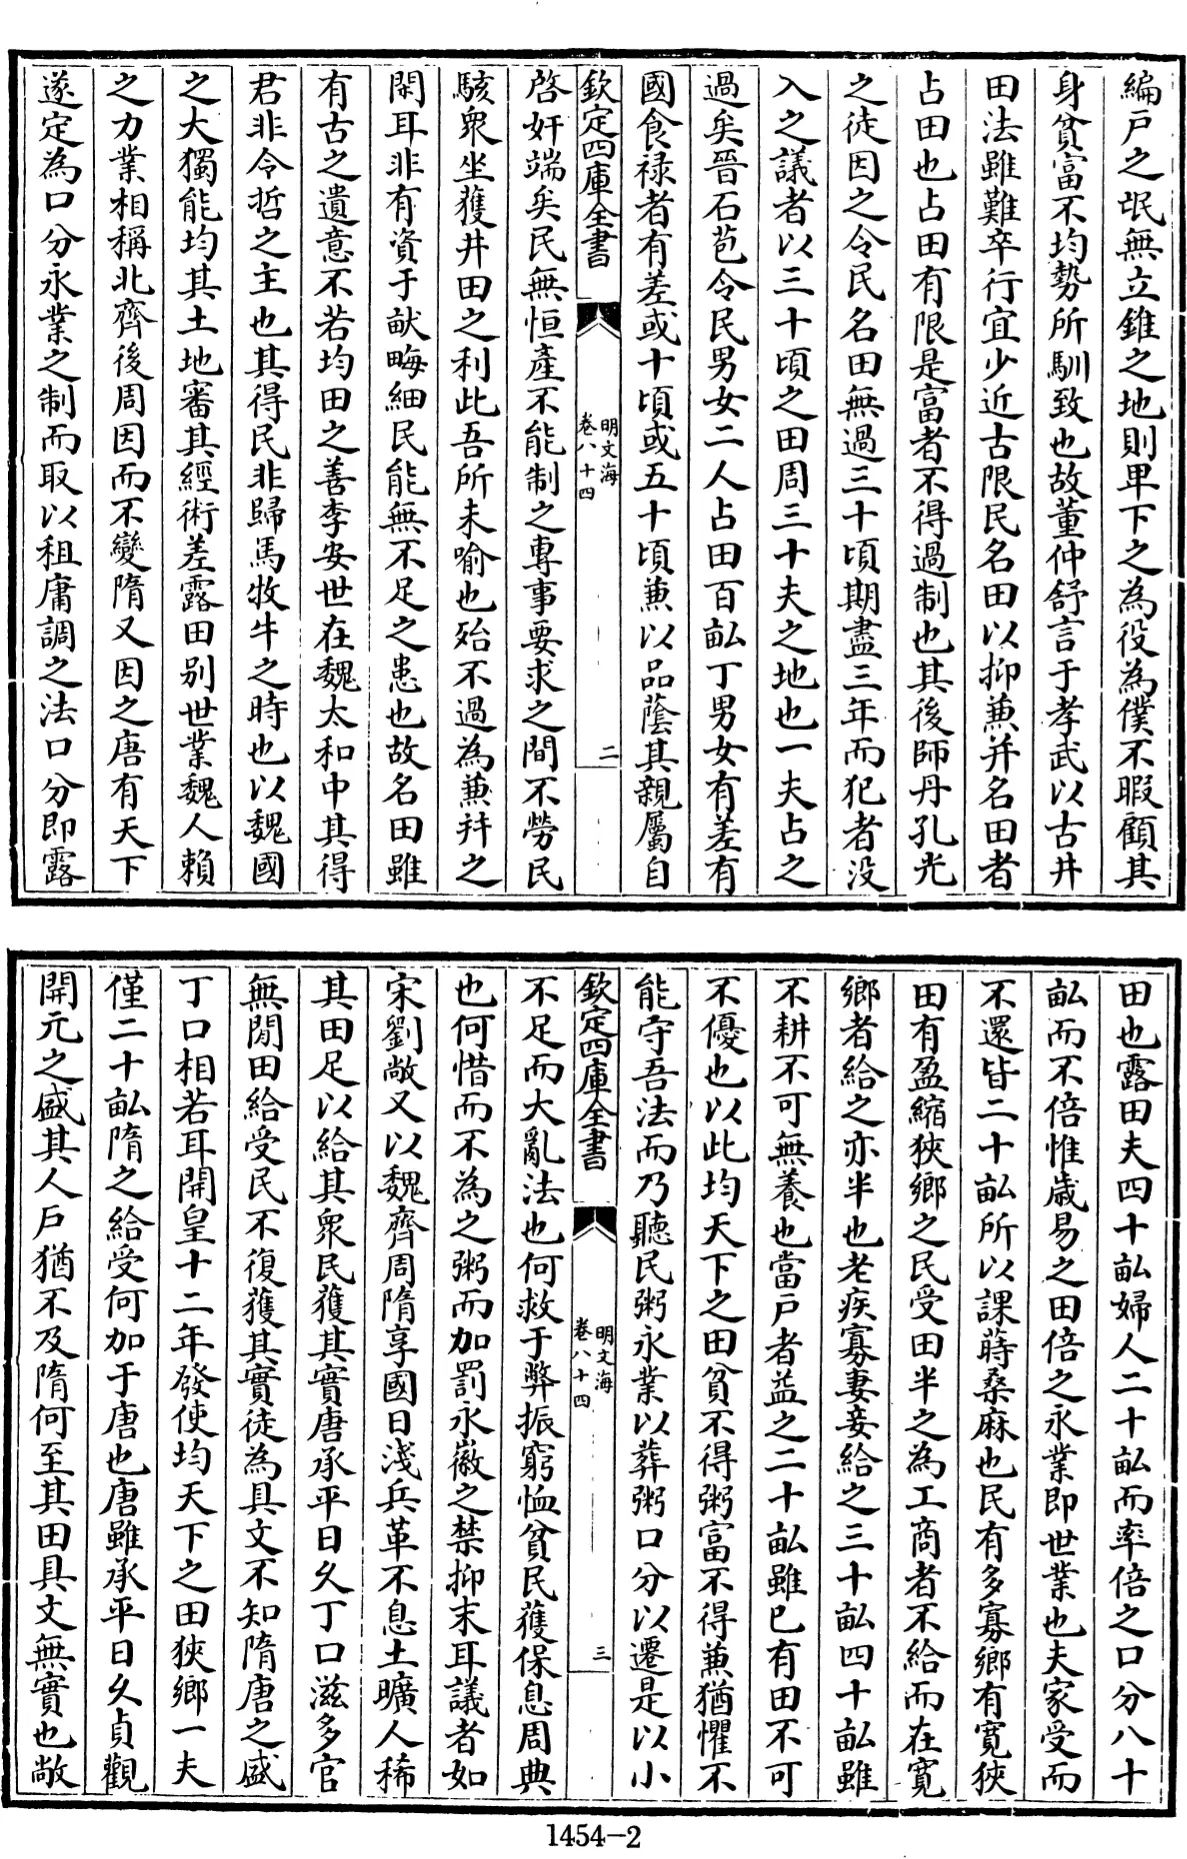 編戸之氓無立錐之地則卑下之為役為僕不暇顧其
身貧富不均勢所馴致也故董仲舒言于孝武以古井
田法雖難卒行宜少近古限民名田以抑兼并名田者
占田也占田有限是富者不得過制也其後師丹孔光
之徒因之令民名田無過三十頃期盡三年而犯者没
入之議者以三十頃之田周三十夫之地也一夫占之
過矣晉石苞令民男女二人占田百畝丁男女有差有
國食禄者有差或十頃或五十頃兼以品蔭其親屬自
欽定四庫全書
明文海
卷八十四
二
啓奸端矣民無恒產不能制之專事要求之間不勞民
駭衆坐獲井田之利此吾所未喻也殆不過為兼并之
閑耳非有資于畎畮細民能無不足之患也故名田雖
有古之遺意不若均田之善李安世在魏太和中其得
君非令哲之主也其得民非歸馬牧牛之時也以魏國
之大獨能均其土地審其經術差露田别世業魏人賴
之力業相稱北齊後周因而不變隋又因之唐有天下
遂定為口分永業之制而取以租庸調之法口分即露
田也露田夫四十畝婦人二十畝而率倍之口分八十
畝而不倍惟歲易之田倍之永業即世業也夫家受而
不還皆二十畝所以課蒔桑麻也民有多寡鄉有寛狹
田有盈縮狹鄉之民受田半之為工商者不給而在寛
鄉者給之亦半也老疾寡妻妾給之三十畝四十畝雖
不耕不可無養也當戸者益之二十畝雖已有田不可
不優也以此均天下之田貧不得粥富不得兼猶懼不
能守吾法而乃聽民粥永業以葬粥口分以遷是以小
欽定四庫全書
明文海
卷八十四
三
不足而大亂法也何救于弊振窮恤貧民獲保息周典
也何惜而不為之粥而加罰永徽之禁抑末耳議者如
宋劉敞又以魏齊周隋享國日淺兵革不息土曠人稀
其田足以給其衆民獲其實唐承平日久丁口滋多官
無閒田給受民不復獲其實徒為具文不知隋唐之盛
丁口相若耳開皇十二年發使均天下之田狹鄉一夫
僅二十畝隋之給受何加于唐也唐雖承平日久貞觀
開元之盛其人戸猶不及隋何至其田具文無實也敞
1454-2